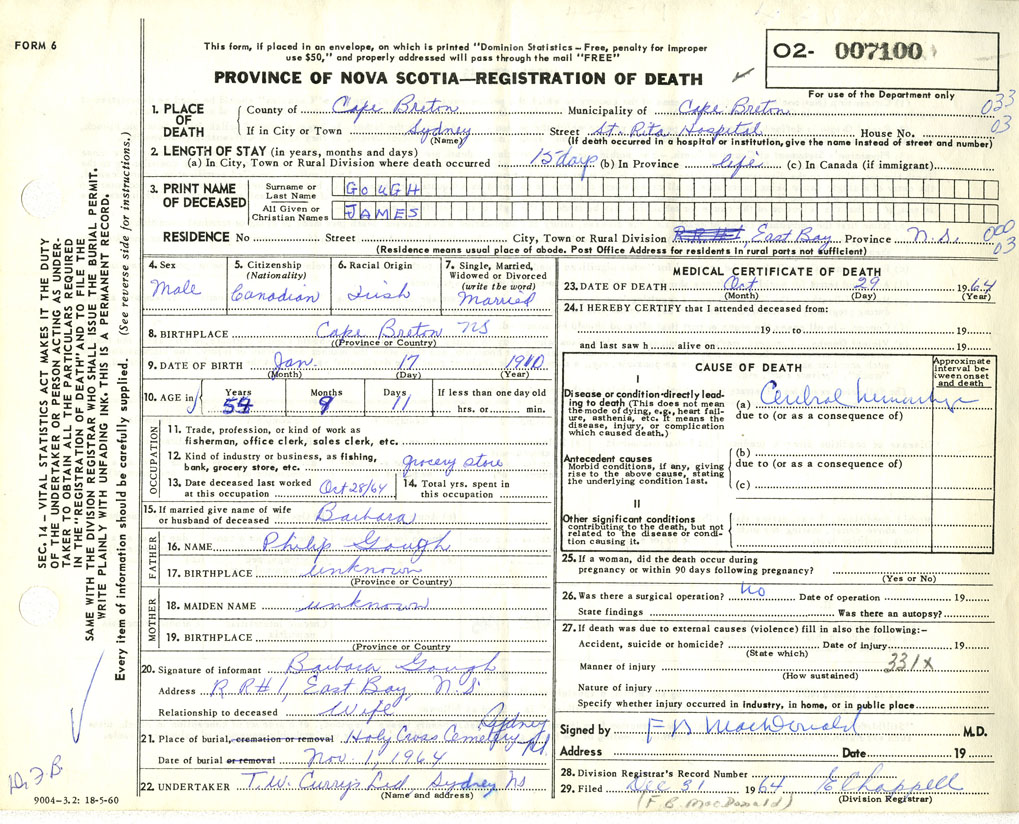 FORM 6
This form, if placed in an envelope, on which is printed "Dominion Statistics – Free, penalty for improper
use $50," and properly addressed will pass through the mail "FREE"
PROVINCE OF NOVA SCOTIA—REGISTRATION OF DEATH
02- 007100
For use of the Department only
033
03
1. PLACE OF DEATH
County of Cape Breton Municipality of Cape Breton
If in City or Town Sydney Street St. Rita Hospital House No.
(Name) (If death occurred in a hospital or institution, give the name instead of street and number)
2. LENGTH OF STAY (in years, months and days)
(a) In City, Town or Rural Division where death occurred 15 days (b) In Province life (c) In Canada (if immigrant)
3. PRINT NAME OF DECEASED
Surname or Last Name GOUGH
All Given or Christian Names JAMES
RESIDENCE No Street City, Town or Rural Division R.R.#1, East Bay Province N.S.
000
03
(Residence means usual place of abode. Post Office Address for residents in rural parts not sufficient)
4. Sex Male
5. Citizenship (Nationality) Canadian
6. Racial Origin Irish
7. Single, Married, Widowed or Divorced (write the word) Married
8. BIRTHPLACE Cape Breton NS
(Province or Country)
9. DATE OF BIRTH Jan. 17 1910
(Month) (Day) (Year)
10. AGE in Years 54 Months 9 Days 11 If less than one day old hrs. or min.
OCCUPATION
11. Trade, profession, or kind of work as
fisherman, office clerk, sales clerk, etc.
12. Kind of industry or business, as fishing,
bank, grocery store, etc. grocery store
13. Date deceased last worked at this occupation Oct 28/64
14. Total yrs. spent in this occupation
15. If married give name of wife
or husband of deceased Barbara
FATHER
16. NAME Philip Gough
17. BIRTHPLACE unknown
(Province or Country)
MOTHER
18. MAIDEN NAME unknown
19. BIRTHPLACE
(Province or Country)
20. Signature of informant Barbara Gough
Address R R #1, East Bay, N.S.
Relationship to deceased Wife
21. Place of burial, cremation or removal Holy Cross Cemetery Sydney Rd.
Date of burial or removal Nov. 1, 1964
22. UNDERTAKER T.W. Curry's Ltd Sydney NS
(Name and address)
MEDICAL CERTIFICATE OF DEATH
23. DATE OF DEATH Oct 29 1964
(Month) (Day) (Year)
24. I HEREBY CERTIFY that I attended deceased from:
19 to 19
and last saw h alive on 19
CAUSE OF DEATH
Approximate interval between onset and death
I
Disease or condition directly leading to death (This does not mean the mode of dying, e.g., heart failure, asthenia, etc. It means the disease, injury, or complication which caused death.)
(a) Cerebral hemorrhage
due to (or as a consequence of)
Antecedent causes
Morbid conditions, if any, giving rise to the above cause, stating the underlying condition last.
(b)
due to (or as a consequence of)
(c)
II
Other significant conditions contributing to the death, but not related to the disease or condition causing it.
25. If a woman, did the death occur during
pregnancy or within 90 days following pregnancy?
(Yes or No)
26. Was there a surgical operation? No Date of operation 19
State findings Was there an autopsy?
27. If death was due to external causes (violence) fill in also the following:–
Accident, suicide or homicide? Date of injury 19
(State which)
331x
Manner of injury
(How sustained)
Nature of injury
Specify whether injury occurred in industry, in home, or in public place
Signed by F B MacDonald M.D.
Address Date 19
28. Division Registrar's Record Number
29. Filed Dec 31 1964 E Chappell
(F. B. MacDonald) (Division Registrar)
SEC. 14 – VITAL STATISTICS ACT MAKES IT THE DUTY
OF THE UNDERTAKER OR PERSON ACTING AS UNDER-
TAKER TO OBTAIN ALL THE PARTICULARS REQUIRED
IN THE "REGISTRATION OF DEATH" AND TO FILE THE
SAME WITH THE DIVISION REGISTRAR WHO SHALL ISSUE THE BURIAL PERMIT.
WRITE PLAINLY WITH UNFADING INK. THIS IS A PERMANENT RECORD.
Every item of information should be carefully supplied. (See reverse side for instructions.)
9004-3.2: 18-5-60